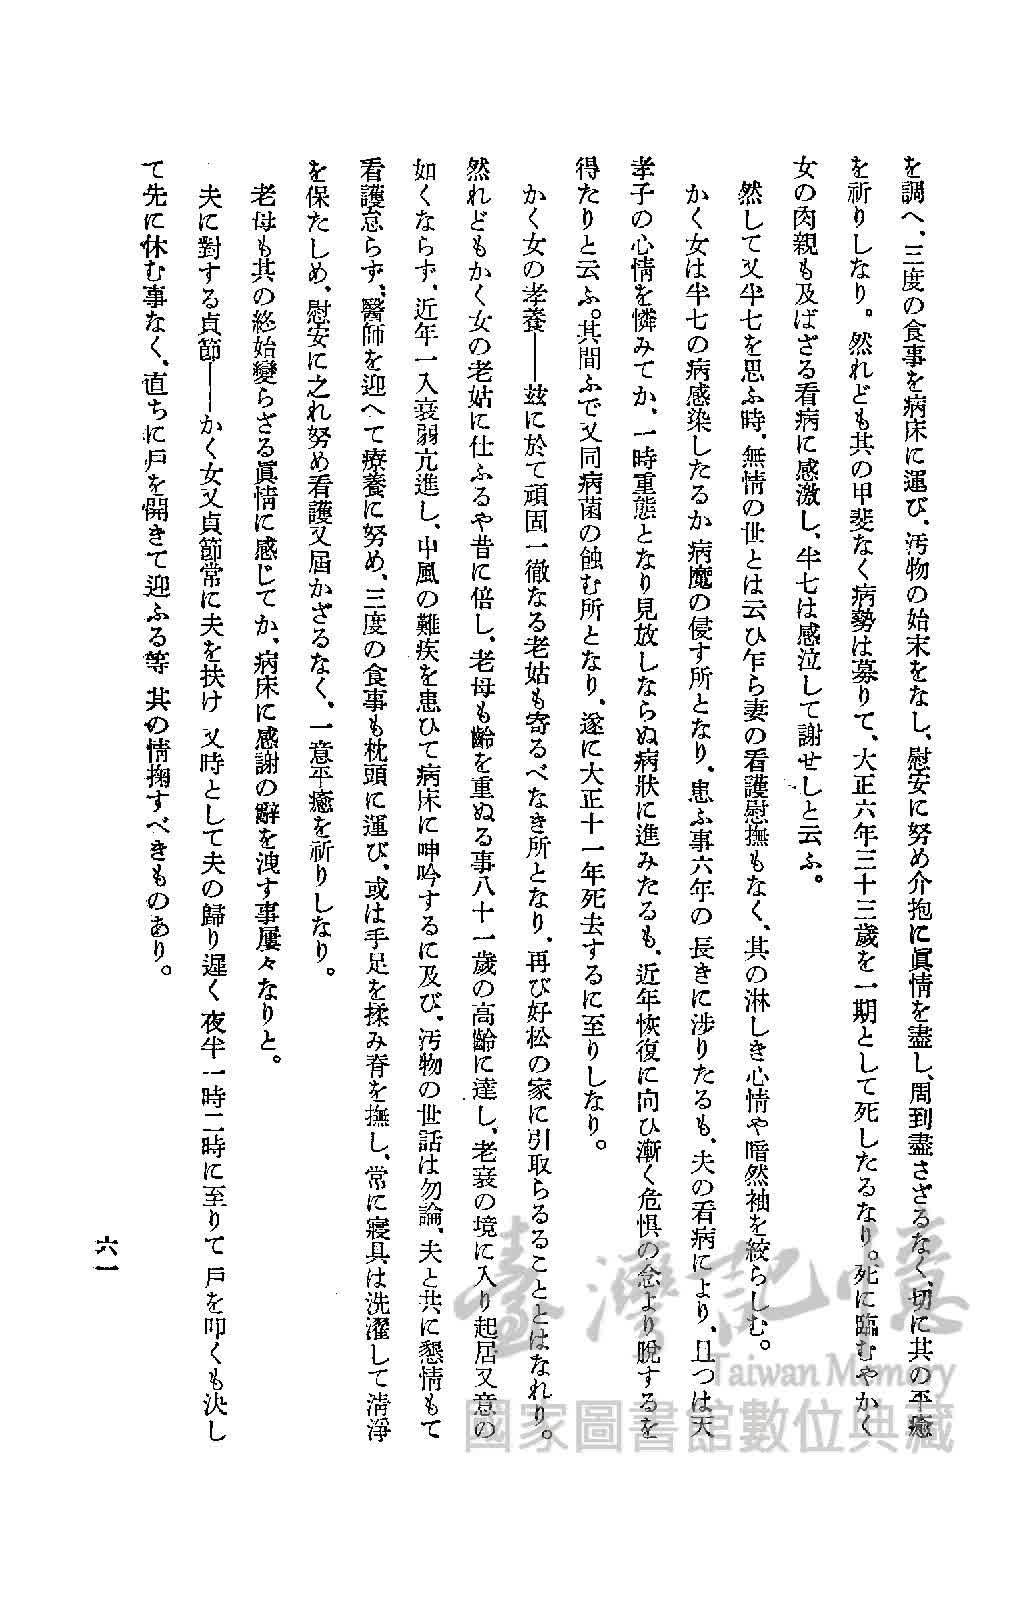 を調へ、三度の食事を病床に運び、汚物の始末をなし、慰安に努め介抱に眞情を盡し、周到盡さざるなく、切に其の平癒
を祈りしなり。然れども其の甲斐なく病勢は募りて、大正六年三十三歳を一期として死したるなり。死に臨むやかく
女の肉親も及ばざる看病に感激し、半七は感泣して謝せしと云ふ。
然して又半七を思ふ時、無情の世とは云ひ乍ら妻の看護慰撫もなく、其の淋しき心情や暗然袖を絞らしむ。
かく女は半七の病感染したるか病魔の侵す所となり、患ふ事六年の長きに渉りたるも、夫の看病により、且つは天
孝子の心情を憐みてか、一時重態となり見放しならぬ病狀に進みたるも、近年恢復に向ひ漸く危惧の念より脫するを
得たりと云ふ。其間ふで又同病菌の蝕む所となり、遂に大正十一年死去するに至りしなり。
かく女の孝養――玆に於て頑固一徹なる老姑も寄るべなき所となり、再び好松の家に引取らるることとはなれり。
然れどもかく女の老姑に仕ふるや昔に倍し、老母も齡を重ぬる事八十一歲の高齡に達し、老衰の境に入り起居又意の
如くならず、近年一入衰弱亢進し、中風の難疾を患ひて病床に呻吟するに及び、汚物の世話は勿論、夫と共に懇情もて
看護怠らず、醫師を迎へて療養に努め、三度の食事も枕頭に運び、或は手足を揉み脊を撫し、常に寢具は洗濯して淸淨
を保たしめ、慰安に之れ努め看護又屆かざるなく、一意平癒を祈りしなり。
老母も其の終始變らざる眞情に感じてか、病床に感謝の辭を洩す事屢々なりと。
夫に對する貞節――かく女又貞節常に夫を扶け 又時として夫の歸り遲く 夜半一時二時に至りて 戶を叩くも決し
て先に休む事なく、直ちに戶を開きて迎ふる等 其の情掬すべきものあり。
六一
臺灣記憶
Taiwan Memory
國家圖書館數位典藏